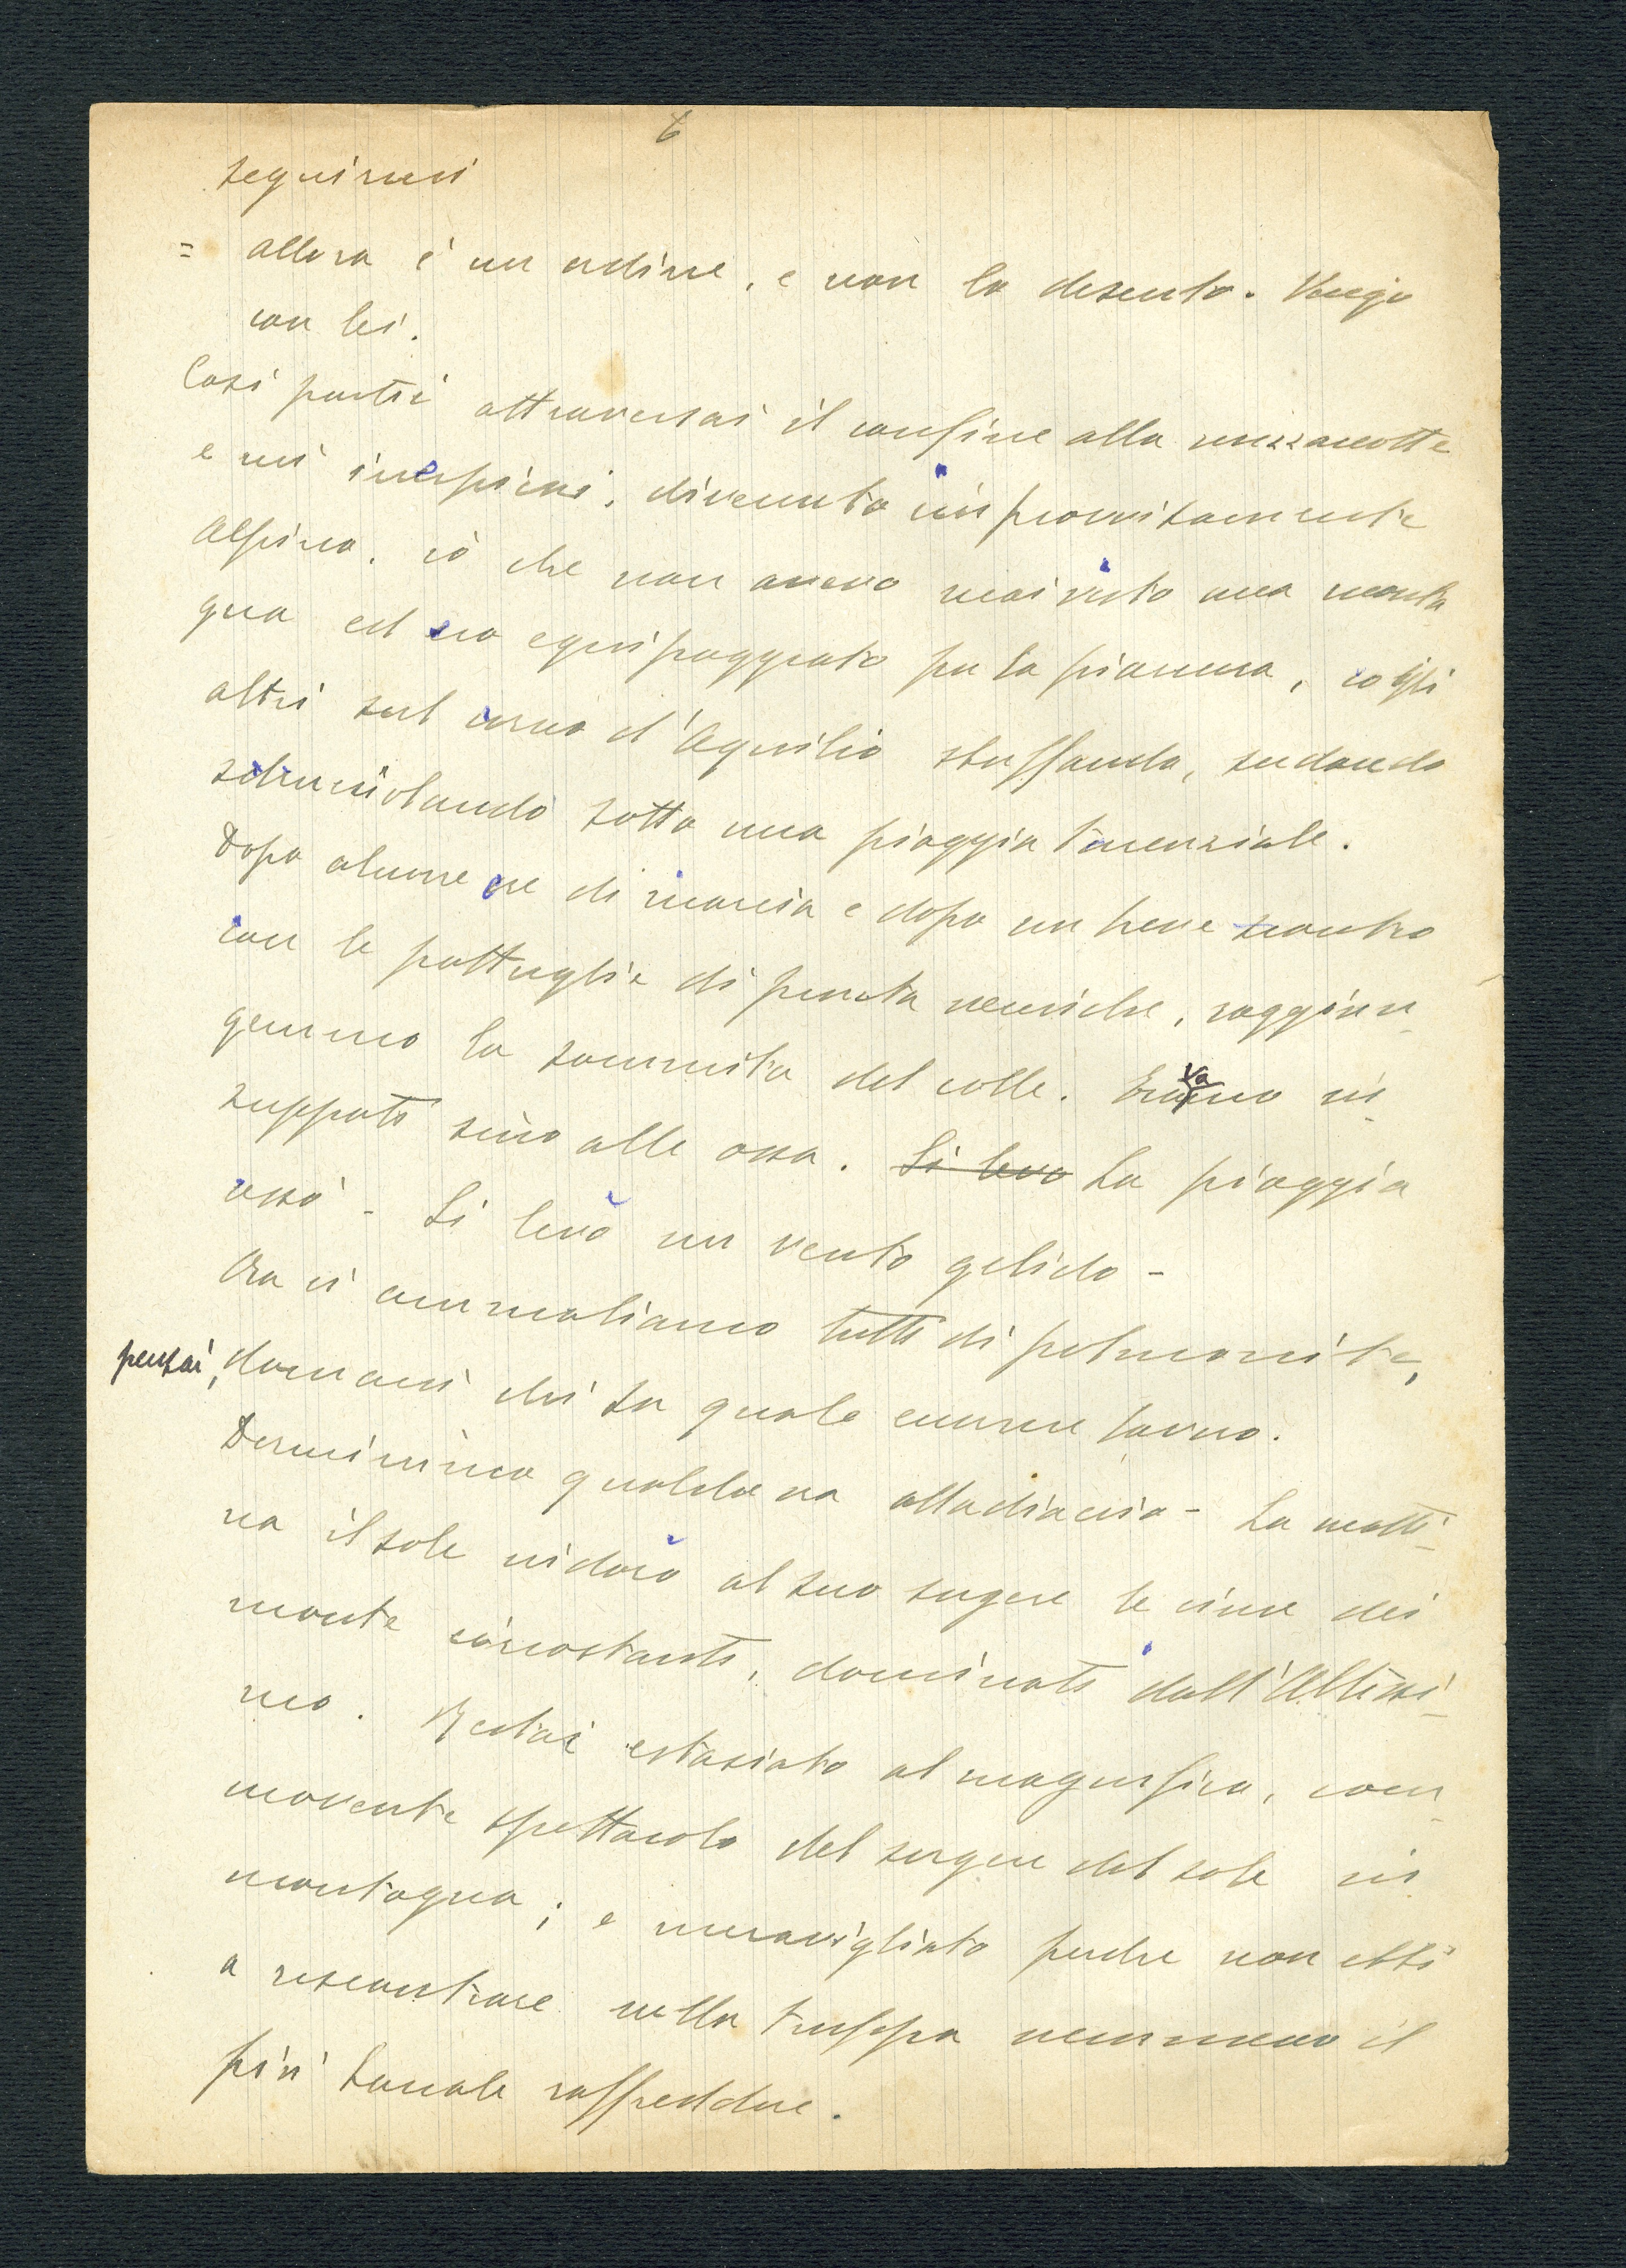 6
seguirmi
= allora è un ordine, e non lo discuto. Vengo
con lei.
Così partii attraversai il confine alla mezzanotte
e mi inerpicai, divenuto improvvisamente
alpino, io che non avevo mai visto una monta
gna ed ero equipaggiato per la pianura, cogli
altri sul corno d'Aquilio sbuffando, sudando
sdrucciolando sotto una pioggia torrenziale.
Dopo alcune ore di marcia e dopo un breve scontro
con le pattuglie di punta nemiche, raggiun-
gemmo la sommità del colle. Eravamo in-
zuppati sino alle ossa. Si levo La pioggia
cessò - Si levò un vento gelido -
Ora ci ammaliamo tutti di polmonite,
pensai, domani chi sa quale emmne tavno.
Dormimmo qualche ora all'addiaccio - La matti-
na il sole indorò al suo sorgere le cime dei
monte circostanti, dominati dall'Altissi-
mo. Restai estasiato al magnifico, com-
movente spettacolo del sorgere del sole in
montagna; e meravigliato perche non ebbi
a riscontrare nella truppa nemmeno il
più banale raffreddore.